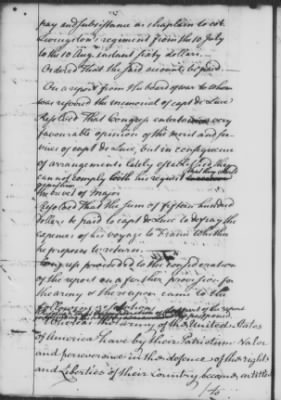 pay and subsistance as chaplain to col
Livingston's regiment from the 10 July
to the 10 Aug. instant sixty dollars.
Ordered That the said account be paid
On a report from the board of war to whom
was referred the memorial of capt de Luce
Resolved That Congress entertain a very
favourable opinion of the merit and ser
vices of capt de Luce, but in consequence
of arrangements lately established they
cannot comply with his request
the brevet of major
Resolved That the sum of fifteen hundred
dollars be paid to capt de Luce to defray the
expences of his voyage to France whither
he proposes to return
Congress proceeded to the consideration
of the report on a farther provision for
the army & thereupon came to the
following resolutions
Whereas the army of the United States
of America have by their Patriotism Valor
and perseverance in the defence of the rights
and liberties of their Country become entitled
to